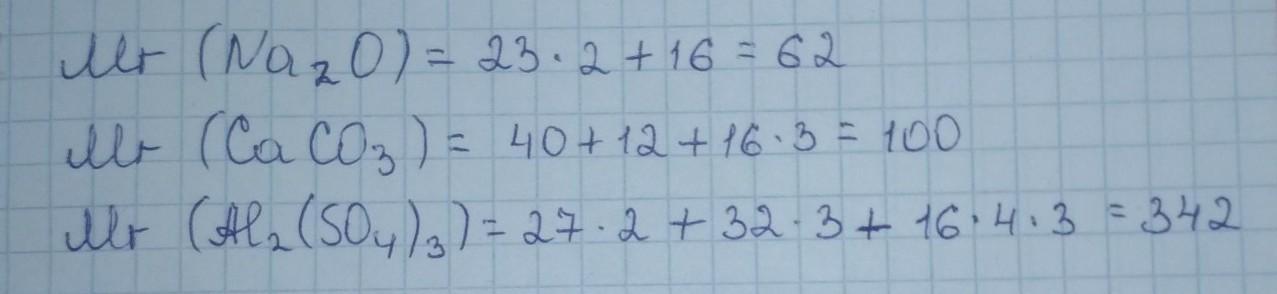 Mr (Na₂O) = 23 · 2 + 16 = 62
Mr (CaCO₃) = 40 + 12 + 16 · 3 = 100
Mr (Al₂(SO₄)₃) = 27 · 2 + 32 · 3 + 16 · 4 · 3 = 342